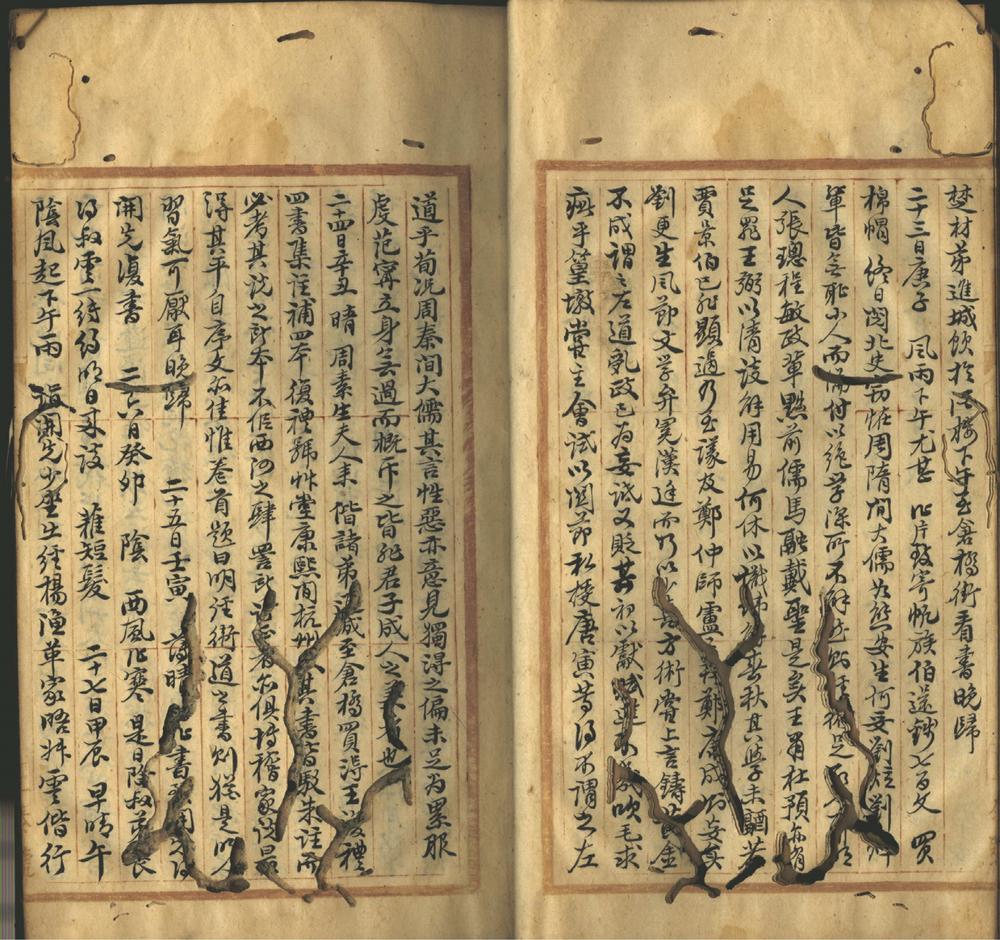 楚材弟進城飲於酒樓下午至倉橋街看書晚歸
二十三日庚子 風雨下午尤甚 作片致寄帆族伯送錢七百文 買
棉帽 終日閱北史 竊怪周隋間大儒如熊安生何妥劉炫劉焯
輩皆無恥小人而付以絕學深所不解
人張璁程敏政輩黜前儒馬融戴聖是矣王肅杜預亦有
足罷王弼以清談解用易何休以讖緯解春秋其學未醇若
賈景伯已非顯過乃至議及鄭仲師盧子幹鄭康成則妄矣
劉更生風節文學弁冕漢廷而乃以其為方術嘗上言鑄黃金
不成謂之左道亂政已為妄詆又貶其初以獻賦進不成吹毛求
疵乎篁墩嘗主會試以關節私梗唐寅等得不謂之左
道乎荀況周秦間大儒其言性惡亦意見獨得之偏未足為累服
虔范甯立身無過而概斥之皆非君子成人之美者也
二十四日辛丑 晴 周素生夫人來 偕諸弟進城至倉橋買得王復禮
四書集注補四本復禮號艸堂康熙間杭州人其書皆駁朱註而
必考其說之所本不似西河之肆詈所證者亦俱博稽家說最
得其平自序文亦佳惟卷首題曰明經術道之書則猶是明人
習氣可厭耳晚歸 二十五日壬寅 薄晴 作書致開先得
開先復書 二十六日癸卯 陰 西風作寒 是日隆叔弟喪
得叔雲一緘約明日來談 薙短髮 二十七日甲辰 早晴午
陰風起下午雨 詣開先少坐生經楊漁草家晤叔雲偕行